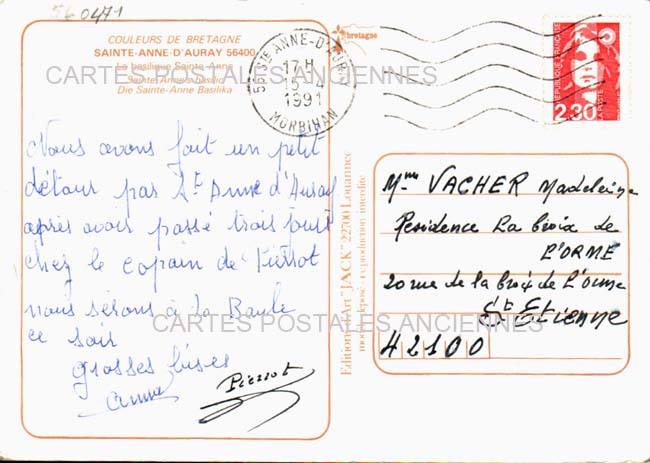 56 0471
COULEURS DE BRETAGNE
SAINTE-ANNE-D'AURAY 56400
La basilique Sainte-Anne
Sainte Anne's basilic
Die Sainte-Anne Basilika
bretagne
56 STE ANNE-D'AURAY
17H
15 - 4
1991
MORBIHAN
REPUBLIQUE FRANÇAISE
2,30
CARTES POSTALES ANCIENNES
Nous avons fait un petit
détour par St Anne d'Auray
après avoir passé trois jours
chez le copain de Pierrot
nous serons à La Baule
ce soir
grosses bises
Anna
Pierrot
Editions d'Art "JACK" 22700 Louannec
mod. déposé - reproduction interdite
Mme VACHER Madeleine
Residence La Croix de
L'ORME
20 rue de la Croix de L'Orme
St Etienne
42100
CARTES POSTALES ANCIENNES